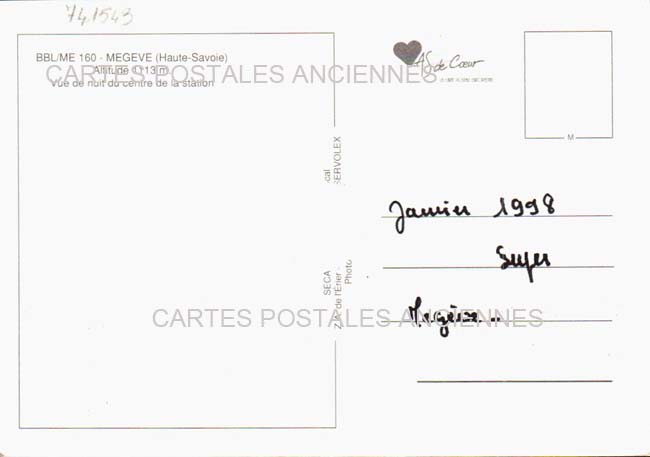 741543
BBL/ME 160 - MEGEVE (Haute-Savoie)
Altitude 1113 m
Vue de nuit du centre de la station
CARTES POSTALES ANCIENNES
As de Cœur
M
SERVOLEX
SECA
Z.A. de l'Erier -
Photo
Janvier 1998
Megève..
CARTES POSTALES ANCIENNES